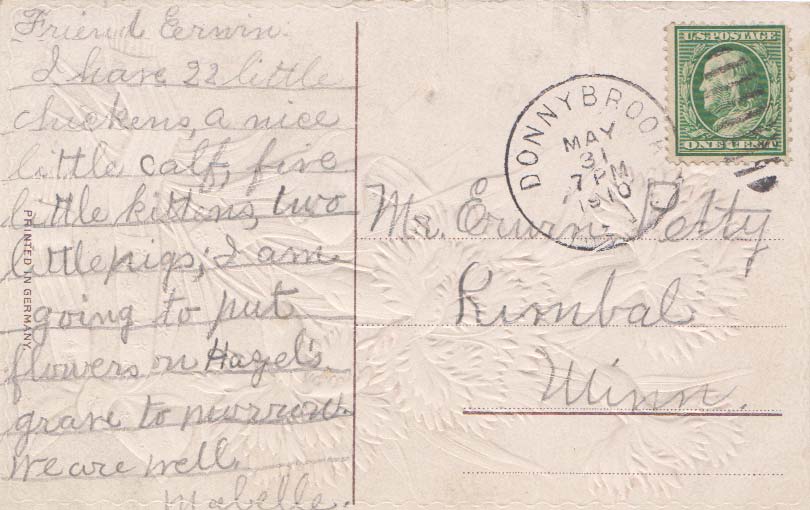 Friend Eerwin.
I have 22 little
chickens, a nice
little calf, five
little kittens, two
little pigs, I am
going to put
flowers on Hazel's
grave to morrow.
we are well.
Mabelle.
PRINTED IN GERMANY.
U.S. POSTAGE
ONE CENT
DONNYBROOK
MAY
31
7 PM
1910
Mr. Erwin Petty
Kimbal
Minn.